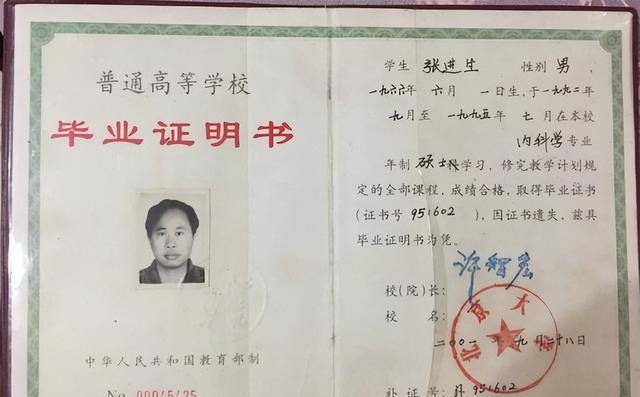 普通高等学校
毕业证明书
中华人民共和国教育部制
No.
学生 张进生 性别 男,
一九六六年 六月 一日生,于一九九二年
九月至 一九九五年 七月在本校
内科学 专业
年制 硕士 学习,修完教学计划规
定的全部课程,成绩合格,取得毕业证书
(证书号 951602 ),因证书遗失,兹具
毕业证明书为凭。
许智宏
校(院)长:
校 名:
北京大学
二〇〇一年 九月二十八日
补证号: 951602